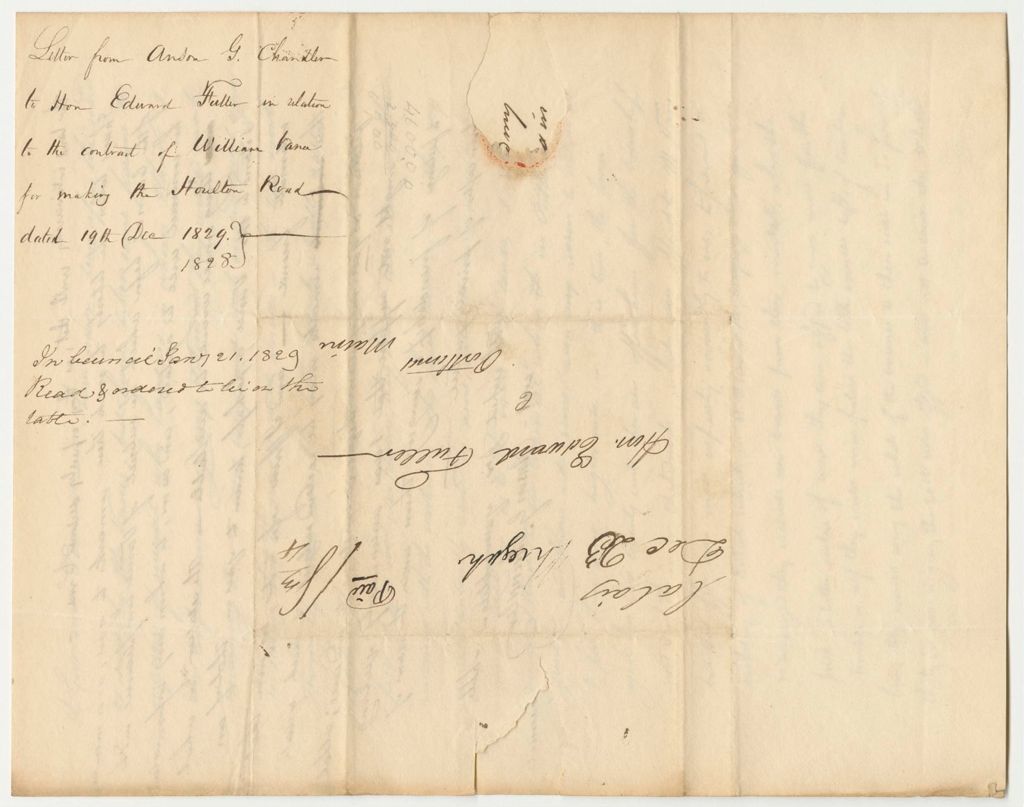 Letter from Anson G. Chandler
to Hon Edward Fuller in relation
to the contract of William Vance
for making the Houlton Road
dated 19th Dec 1829.
1828
In Council Jany 21. 1829
Read & ordered to lie on the
table.
Calais
Dec 23
Paid
18 3/4
Hon. Edward Fuller
Portland
Maine